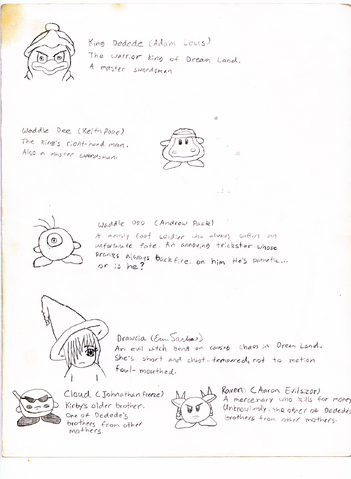 King Dedede (Adam Lewis)
The warrior king of Dream Land.
A master swordsman
Waddle Dee (Keith Pace)
The king's right-hand man.
Also a master swordsman.
Waddle Doo (Andrew
A army foot soldier who always suffers an
unfortunate fate. An annoying trickster whose
pranks always backfire on him. He's pathetic...
or is he?
Drawcia (
An evil witch bent on causing chaos in Dream Land.
She's short and short-tempered, not to motion
foul-mouthed.
Cloud (Johnathan freeze)
Kirby's older brother.
One of Dedede's
brothers from other
mothers.
Raven: (Aaron Evilsizor)
A mercenary who kills for money
Unknowingly, the other of Dedede's
brothers from other mothers.